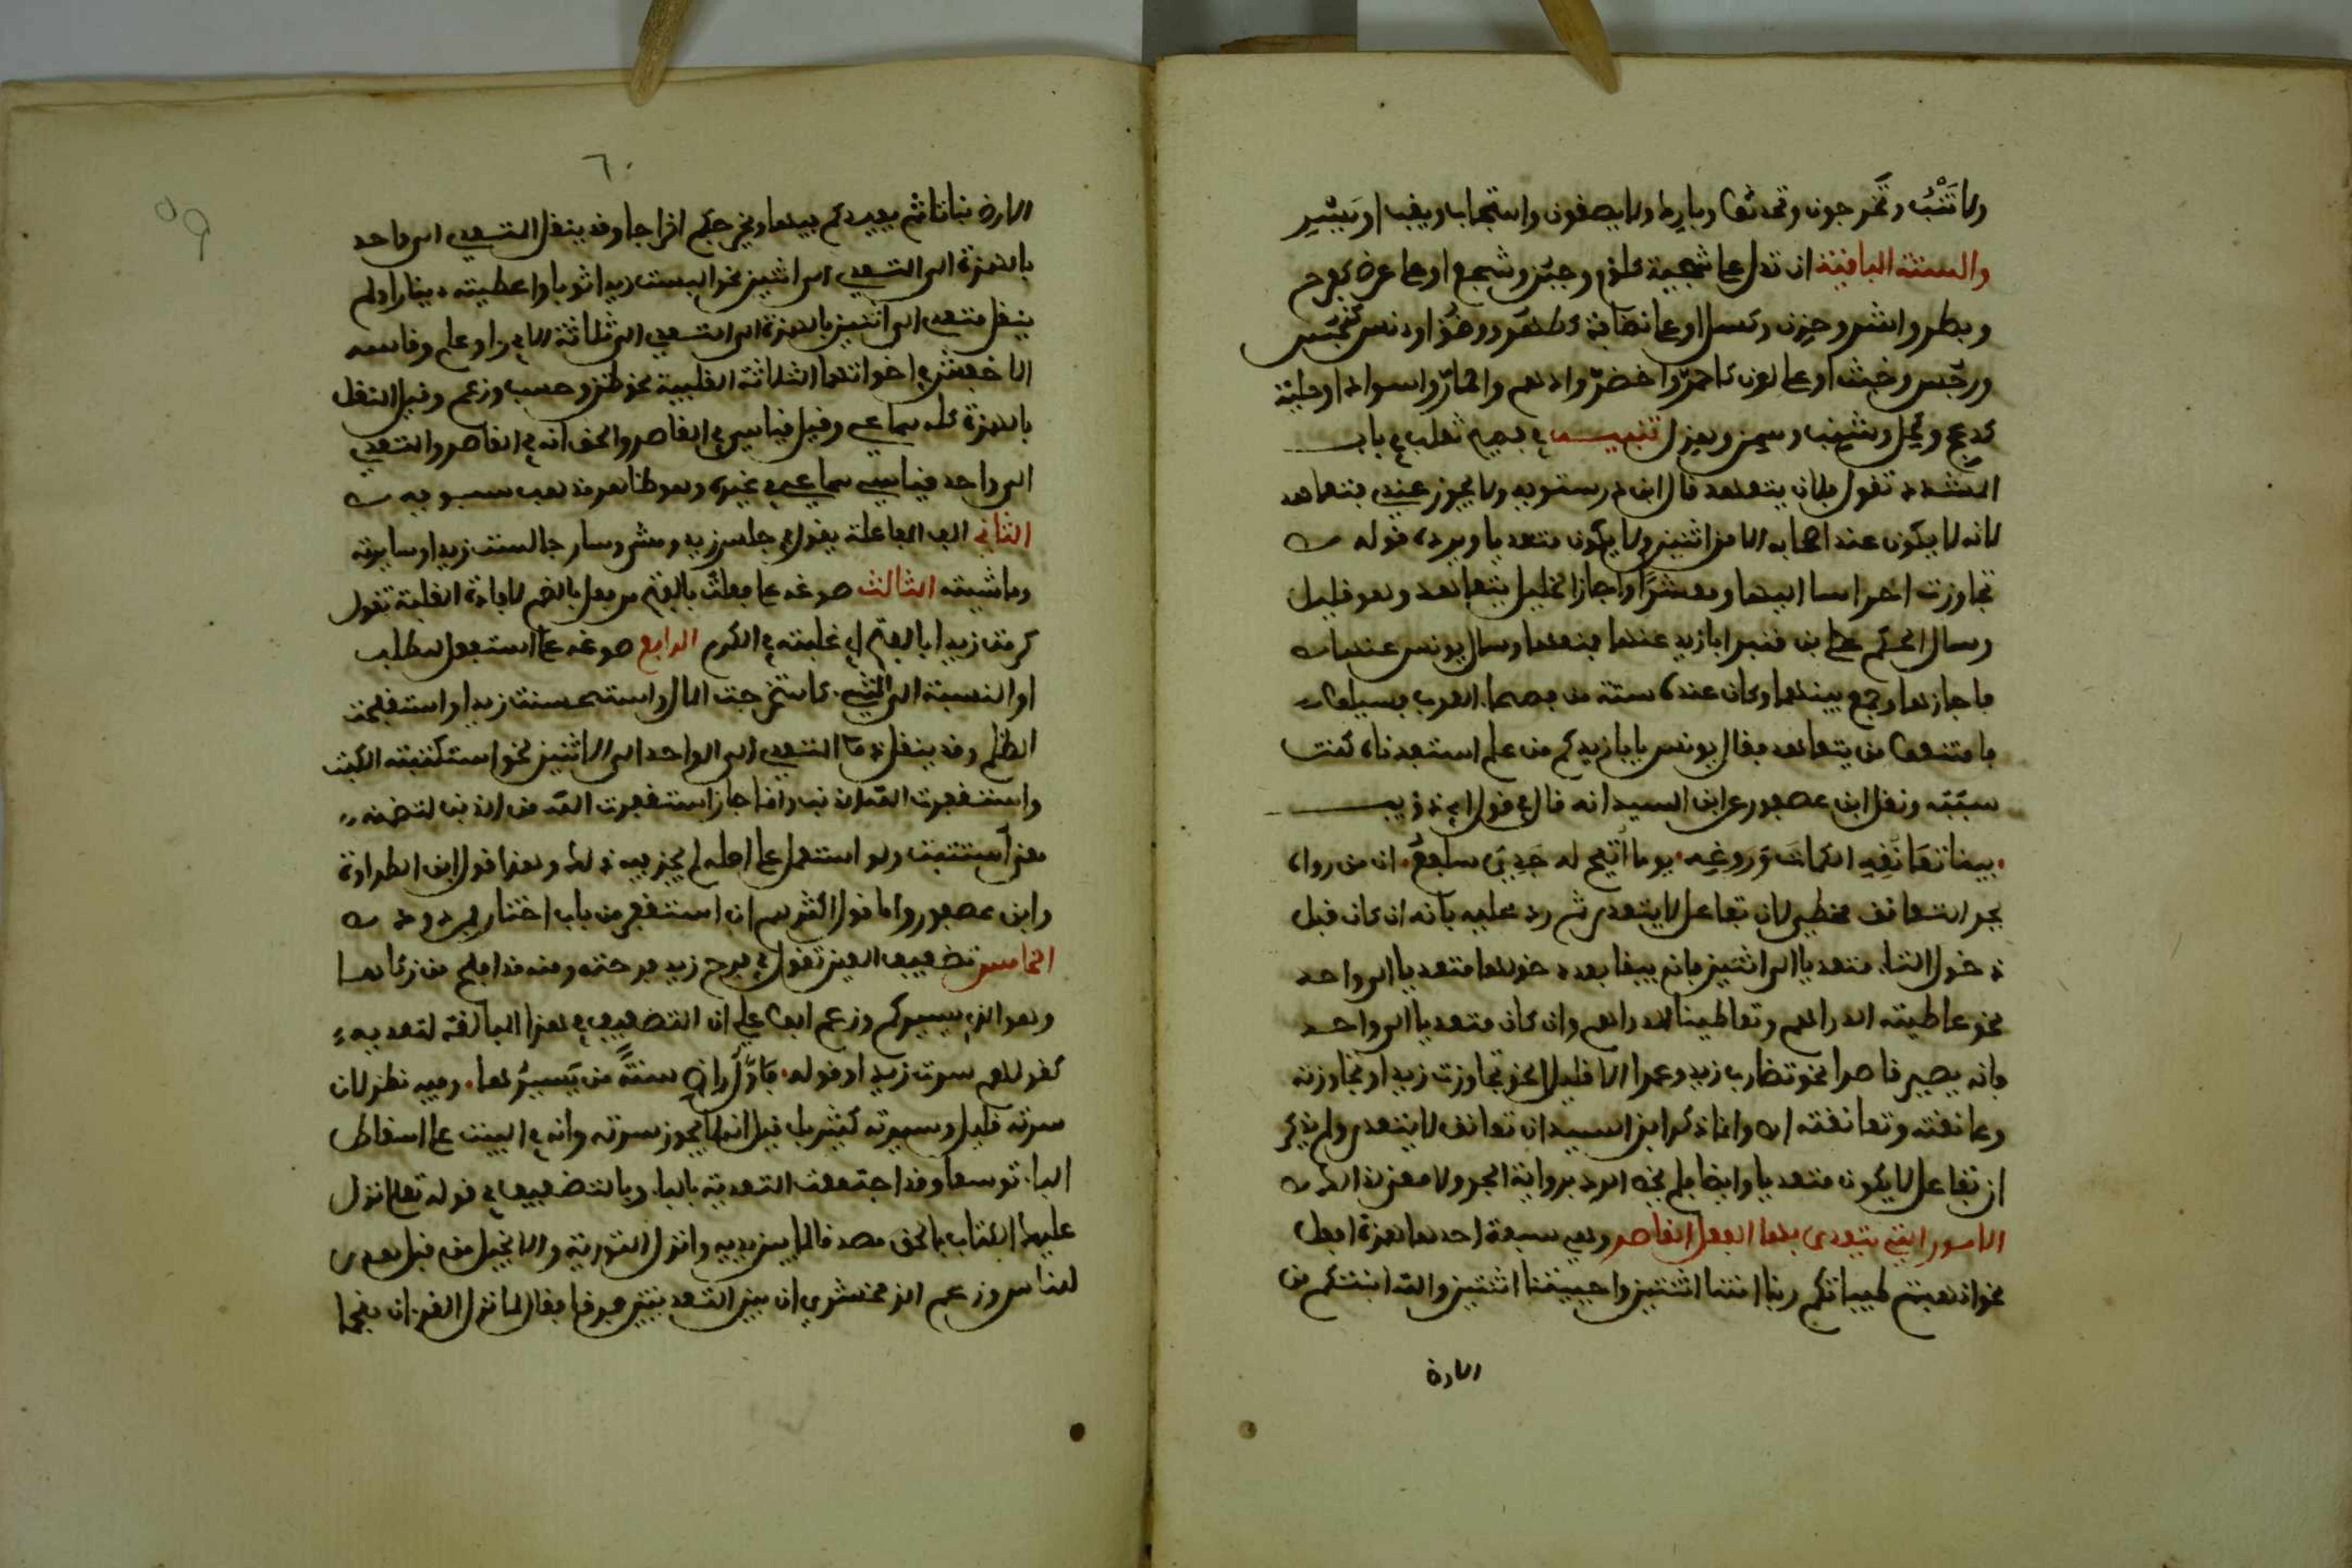 ولا تَتُبْ وتَحَرجون وتحدثها وبارِيها ولا يصفون واستجاب ويغب او يَبشِر
والستة الباقية ان تدل على سجية كلؤم وجبن وشجع او على عرض كفرح
وبطر واشر وحزن وكسل او على نظافة كطهُر ووضُؤ او دنس كنجُس
ورجُس وخبث او على لون كاحمرّ واخضرّ وادهم واحمارّ واسوادّ او حلية
كدعج وكحل وشنب وسمن وهزل تنبيه في فصيح ثعلب في باب
المشدد تقول فلان يتعهد قال ابن درستويه ولا يجوز عنده يتعاهد
لانه لا يكون عند اصحابه الا من اثنين ولا يكون متعديا ويرده قوله
تجاوزت احراسا اليها ومعشرًا واجاز الخليل يتعاهد وهو قليل
وسال الحكم بن قنبر ابا زيد عنها فمنعها وسال يونس عنها
فاجازها وجمع بينهما وكان عنده ستة من فصحاء العرب فسيلوا
فامتنعوا من يتعاهد فقال يونس يابا زيد كم من علم استفدناه كنت
سببه ونقل ابن عصفور عن ابن السيد انه قال في قول ابي ذويب
بينا تَعَانُقِهِ الكماتَ وَرَوغِه يوما اُتيح له جَرِيّ سلفعُ ان من رواه
بجر التعانق مخطي لان تفاعل لا يتعدى ثم رد عليه بانه ان كان قبل
دخول التاء متعديا الى اثنين فانه يبقا بعد دخولها متعديا الى واحد
نحو عاطيته الدراهم وتعاطينا الدراهم وان كان متعديا الى واحد
فانه يصير قاصرا نحو تضارب زيد وعمرا الا قليلا نحو تجاوزت زيدا وتجاوزته
وعانقته وتعانقته اه وانما ذكر ابن السيد ان تعانق لا يتعدى ولم يذكر
ان تفاعل لا يكون متعديا وايضا فلم يخص الرد برواية الجر ولا معنى لذلك
الامور التي يتعدى بها الفعل القاصر وهي سبعة احدها همزة افعل
نحو اذهبتم طيباتكم ربنا امتنا اثنتين واحييتنا اثنتين والله انبتكم من
الارض
٦٠
59
الارض نباتا ثم يعيدكم فيها ويخرجكم اخراجا وقد ينقل المتعدي الى واحد
بالهمزة الى التعدي الى اثنين نحو البست زيدا ثوبا واعطيته دينارا ولم
ينقل متعدى الى اثنين بالهمزة الى التعدي الى ثلاثة الا في را وعلم وقاسه
الاخفش في اخواتهما الثلاثة القلبية نحو ظن وحسب وزعم وقيل النقل
بالهمزة كله سماعي وقيل قياسي في القاصر والحق انه في القاصر والمتعدي
الى واحد قياسي سماعي في غيره وهو ظاهر مذهب سيبويه
الثاني الف المفاعلة يقول في جلس زيد ومشى وسار جالست زيدا وسايرته
وماشيته الثالث صوغه على فعلت بالفتح من يفعل بالضم لافادة الغلبة تقول
كرمت زيدا بالفتح اي غلبته في الكرم الرابع صوغه على استفعل للطلب
او النسبة الى الشيء كاستخرجت المال واستحسنت زيدا واستقبحت
الظلم وقد ينقل ذا المتعدي الى الواحد الى الاثنين نحو استكتبته الكتب
واستغفرت الله الذنب وانما جاز استغفرت الله من الذنب لتضمنه
معنى استتبت ولو استعمل على اصله لم يجز فيه ذلك وهذا قول ابن الطراوة
وابن عصفور واما قول اكثرهم ان استغفر من باب اختار فمردود
الخامس تضعيف العين تقول في فرح زيد فرحته ومنه قد افلح من زكاها
وهو الذي يسيركم وزعم ابو علي ان التضعيف في هذا المبالغة لتعديه
كقولهم سرت زيدا وقوله فاوّلُ راضٍ سنةً من يَسيرُها وفيه نظر لان
سرته قليل وسيرته كثير بل قيل انه لا يجوز سرته وانه في البيت على اسقاط
الباء توسعا وقد اجتمعت التعدية بالباء وبالتضعيف في قوله تعالى نزل
عليك الكتاب بالحق مصدقا لما بين يديه وانزل التورية والانجيل من قبل هدى
للناس وزعم الزمخشري ان بين التعديتين فرقا فقال لما نزل القرءان منجما